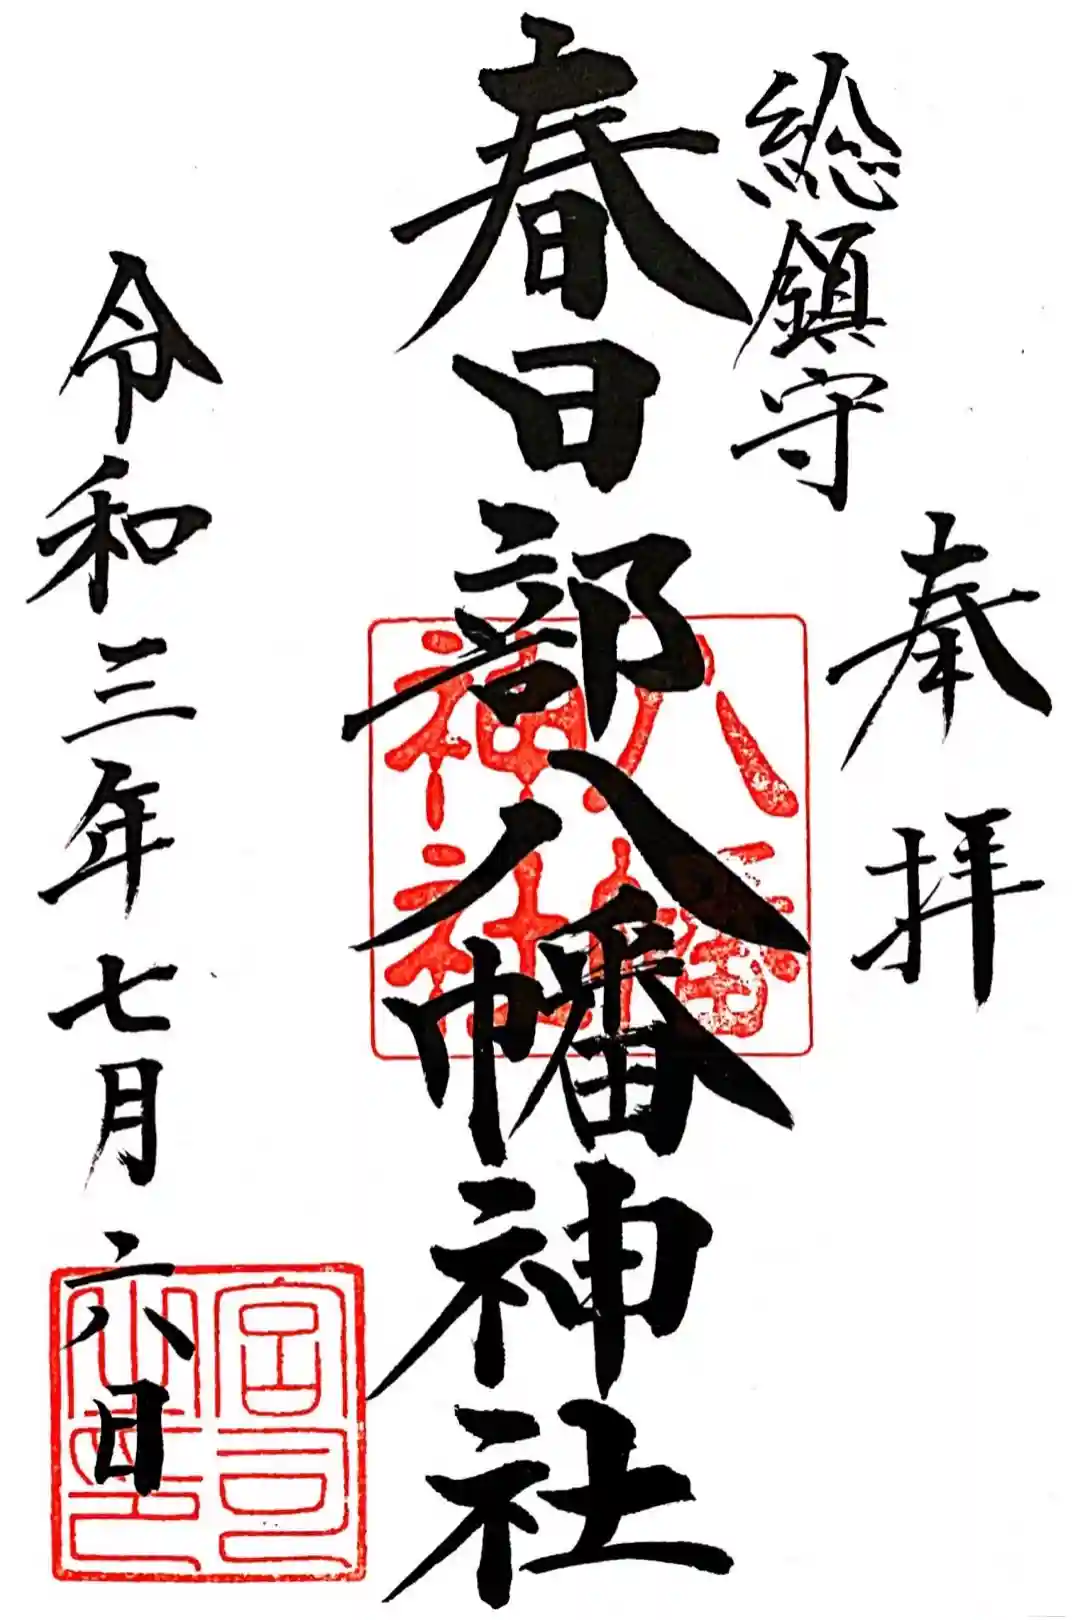 奉拝
総鎮守
春日部八幡神社
八幡
神社
令和三年七月六日
宮司
之印